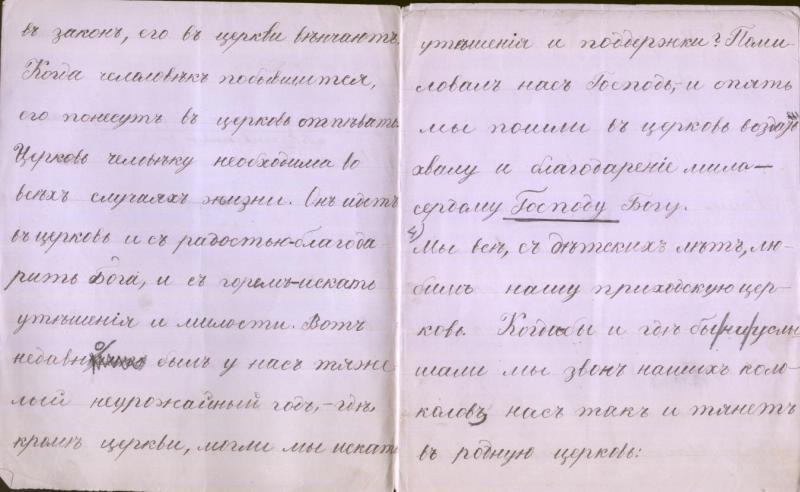 въ законъ, его въ церкви вѣнчаютъ.
Когда человѣкъ побывшится,
его понесутъ въ церковь отпѣвать.
Церковь человѣку необходима во
всѣхъ случаяхъ жизни. Онъ идетъ
въ церковь и съ радостью-благода-
рить Бога, и съ горемъ-искать
утѣшенія и милости. Вотъ
недавно былъ у насъ тяже-
лый неурожайный годъ,-гдѣ,
кромѣ церкви, могли мы искать
утѣшенія и поддержки? Поми-
ловалъ насъ Господь,-и опять
мы пошли въ церковь воздать
хвалу и благодареніе мило-
сердому Господу Богу.
4) Мы всѣ, съ дѣтскихъ лѣтъ, лю-
бимъ нашу приходскую цер-
ковь. Когда бы и гдѣ бы ни услы
шали мы звонъ нашихъ коло-
коловъ, насъ такъ и тянетъ
въ родную церковь: